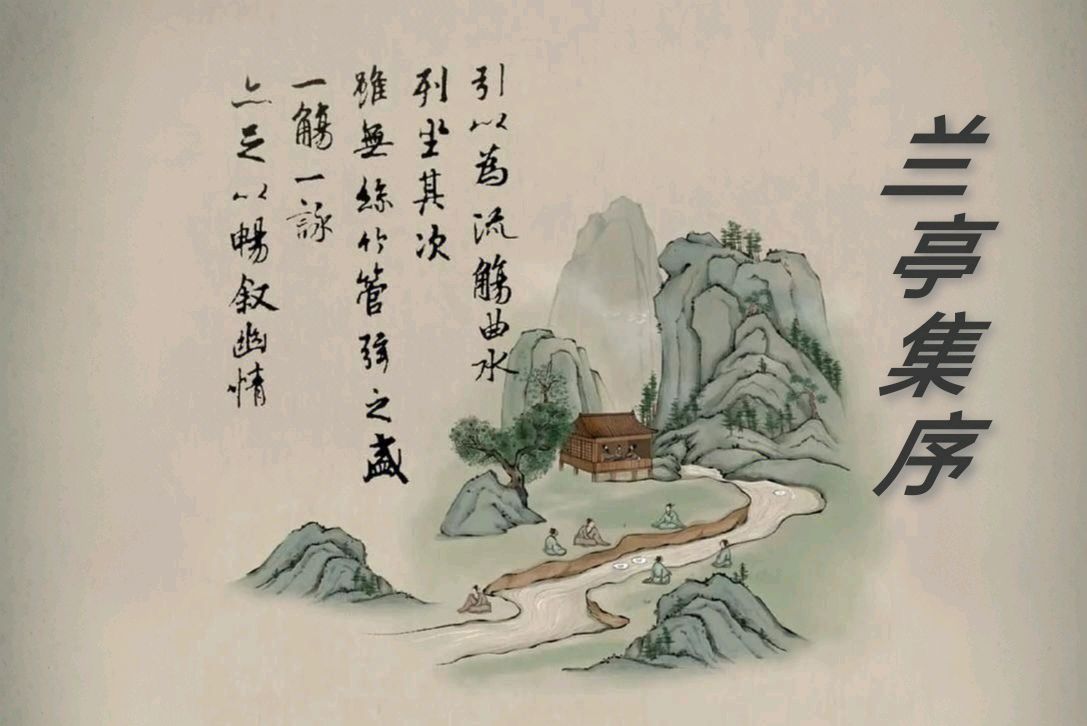 兰亭集序
引以為流觴曲水
列坐其次
雖無絲竹管弦之盛
一觴一詠
亦足以暢叙幽情